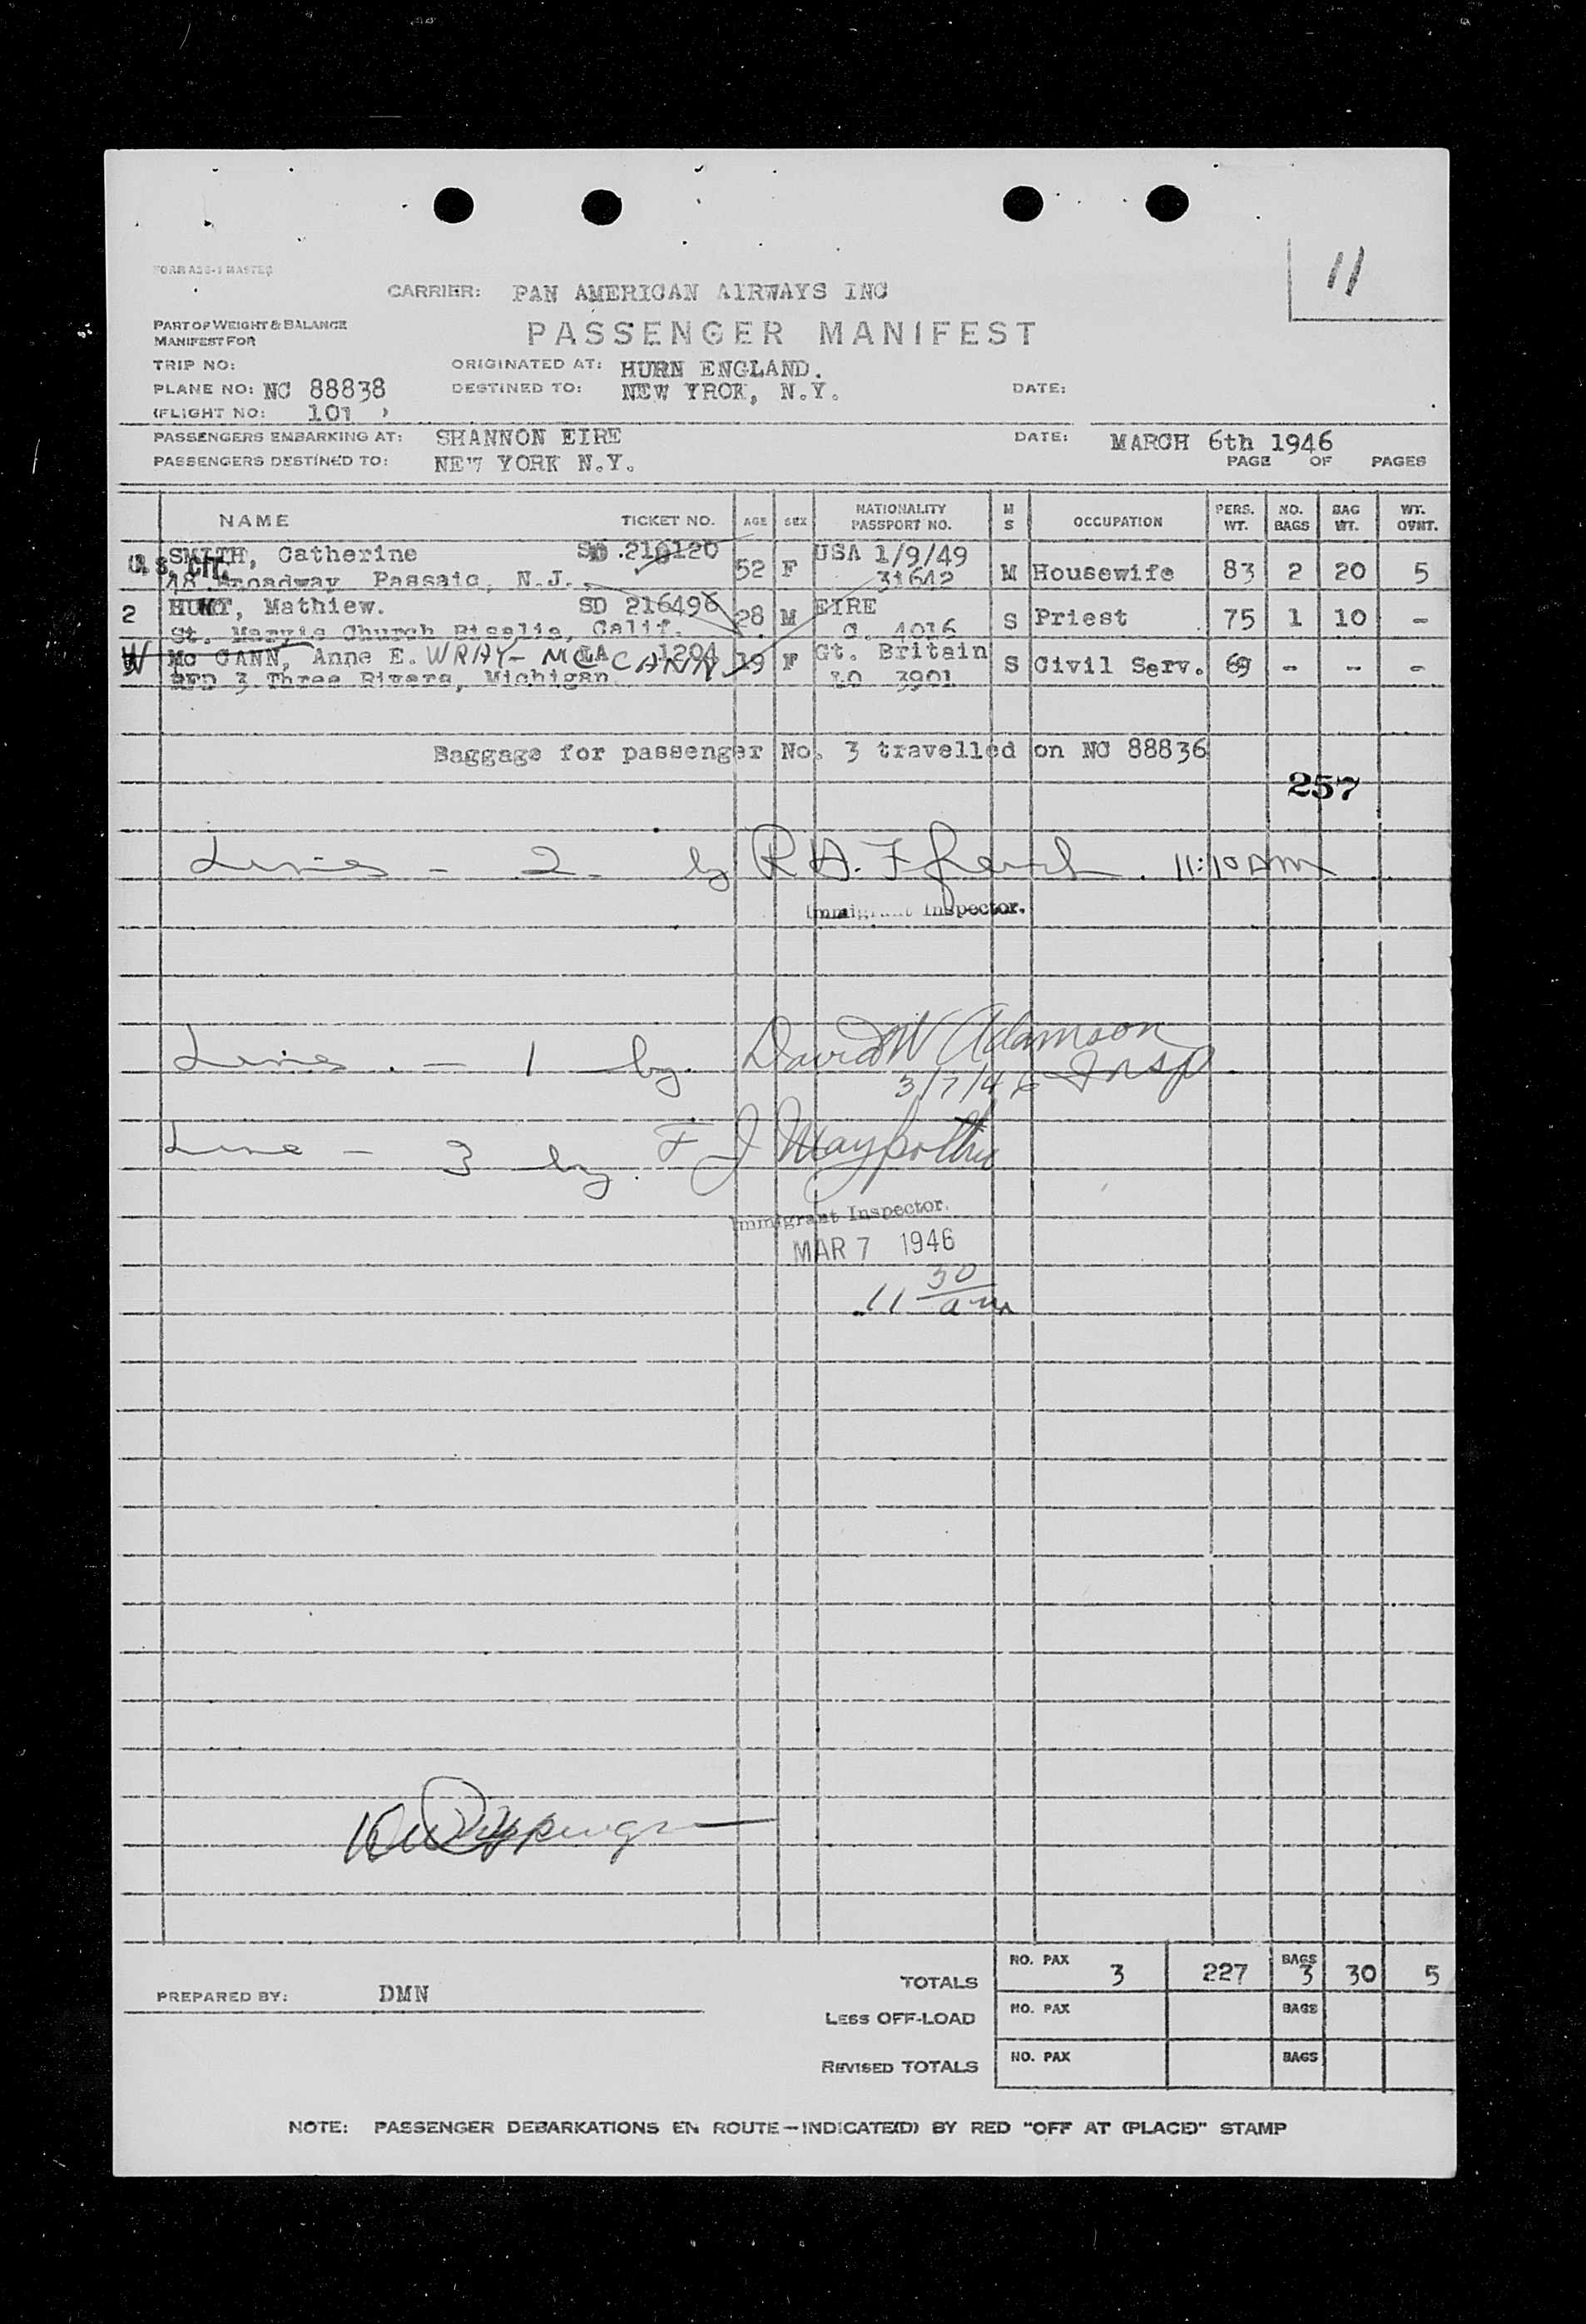 11
FORM A36-1 MASTER
CARRIER: PAN AMERICAN AIRWAYS INC
PART OF WEIGHT & BALANCE
MANIFEST FOR
PASSENGER MANIFEST
TRIP NO: ORIGINATED AT: HURN ENGLAND.
PLANE NO: NC 88838 DESTINED TO: NEW YROK, N.Y. DATE:
(FLIGHT NO: 101 )
PASSENGERS EMBARKING AT: SHANNON EIRE DATE: MARCH 6th 1946
PASSENGERS DESTINED TO: NEW YORK N.Y. PAGE OF PAGES
NAME TICKET NO. AGE SEX NATIONALITY PASSPORT NO. M S OCCUPATION PERS. WT. NO. BAGS BAG WT. WT. OVHT.
U.S. CIT. SMITH, Catherine SD 210120 52 F USA 1/9/49 M Housewife 83 2 20 5
48 Broadway Passaic, N.J. 31642
2 HUNT, Mathiew. SD 216496 28 M EIRE S Priest 75 1 10 -
St. Mary's Church Bisalia, Calif. C. 4016
W Mc CANN, Anne E. WRAY-McCANN LA 1204 19 F Gt. Britain S Civil Serv. 69 - - -
RFD 3 Three Rivers, Michigan LO 3901
Baggage for passenger No. 3 travelled on NC 88836
257
Lines - 2. by R.A. 11:10 AM
Immigrant Inspector.
Lines. - 1 by. David W Adamson
3/7/46 Insp.
Line - 3 by. F J
Immigrant Inspector.
MAR 7 1946
11 30 am
TOTALS NO. PAX 3 227 BAGS 3 30 5
PREPARED BY: DMN
LESS OFF-LOAD NO. PAX BAGS
REVISED TOTALS NO. PAX BAGS
NOTE: PASSENGER DEBARKATIONS EN ROUTE—INDICATE(D) BY RED "OFF AT (PLACE)" STAMP